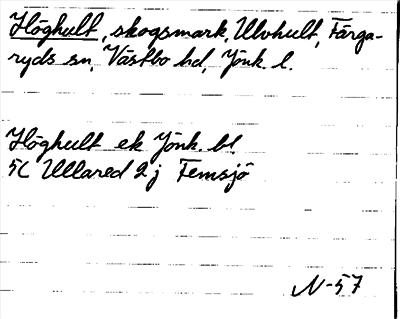 Höghult, skogsmark, Ulvhult, Färga-
ryds sn, Västbo hd, Jönk. l.
Höghult ek Jönk. bl.
5C Ullared 2j Femsjö
N-57